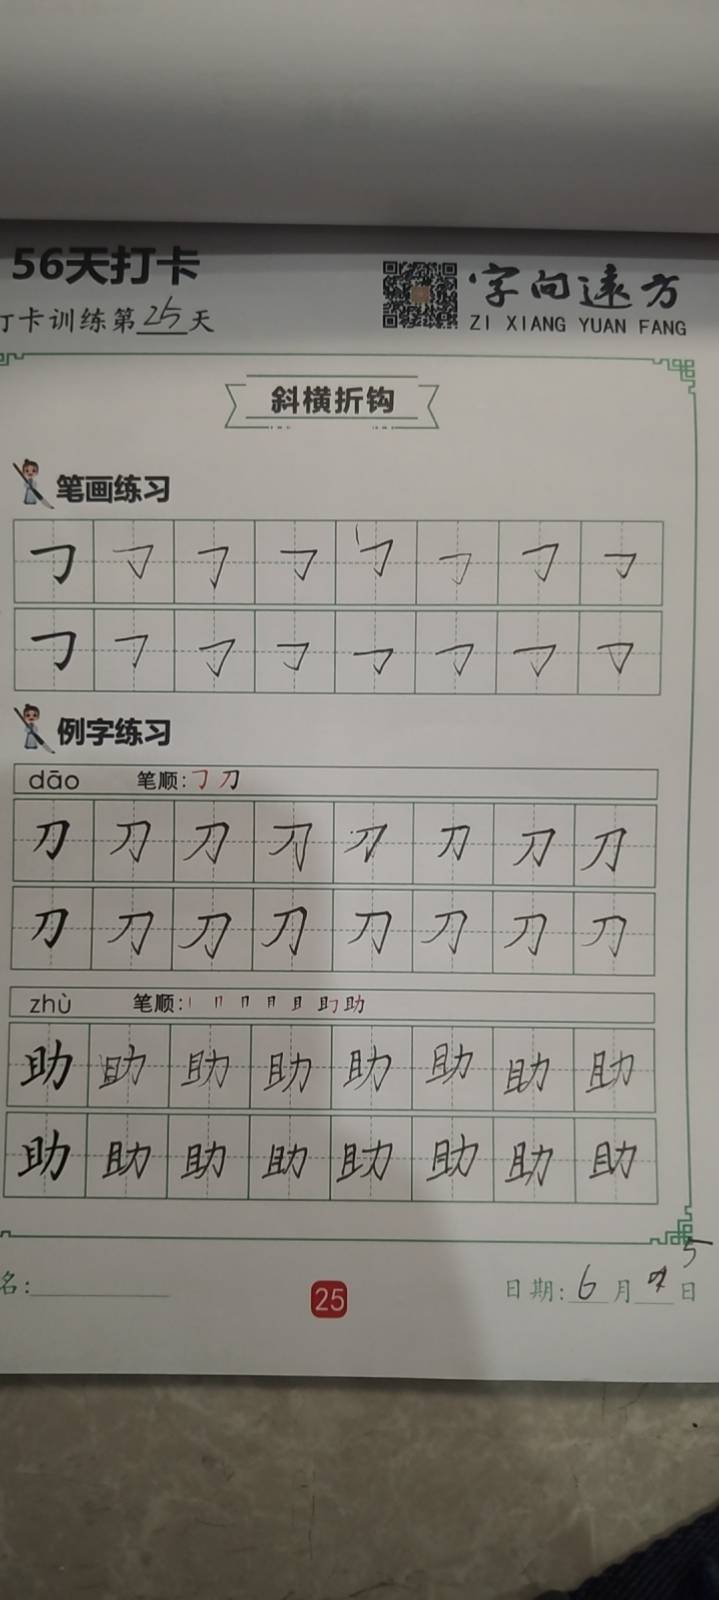 56天打卡
打卡训练第25天
字向远方
ZI XIANG YUAN FANG
斜横折钩
笔画练习
㇆ ㇆ ㇆ ㇆ ㇆ ㇆ ㇆ ㇆
㇆ ㇆ ㇆ ㇆ ㇆ ㇆ ㇆ ㇆
例字练习
dāo 笔顺:㇆ 刀
刀 刀 刀 刀 刀 刀 刀 刀
刀 刀 刀 刀 刀 刀 刀 刀
zhù 笔顺:
助 助 助 助 助 助 助 助
助 助 助 助 助 助 助 助
名:
25
日期:6月5日